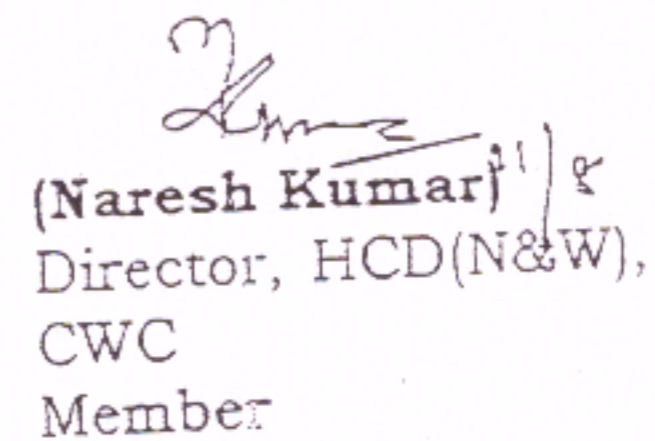 (Naresh Kumar)
Director, HCD(N&W),
CWC
Member